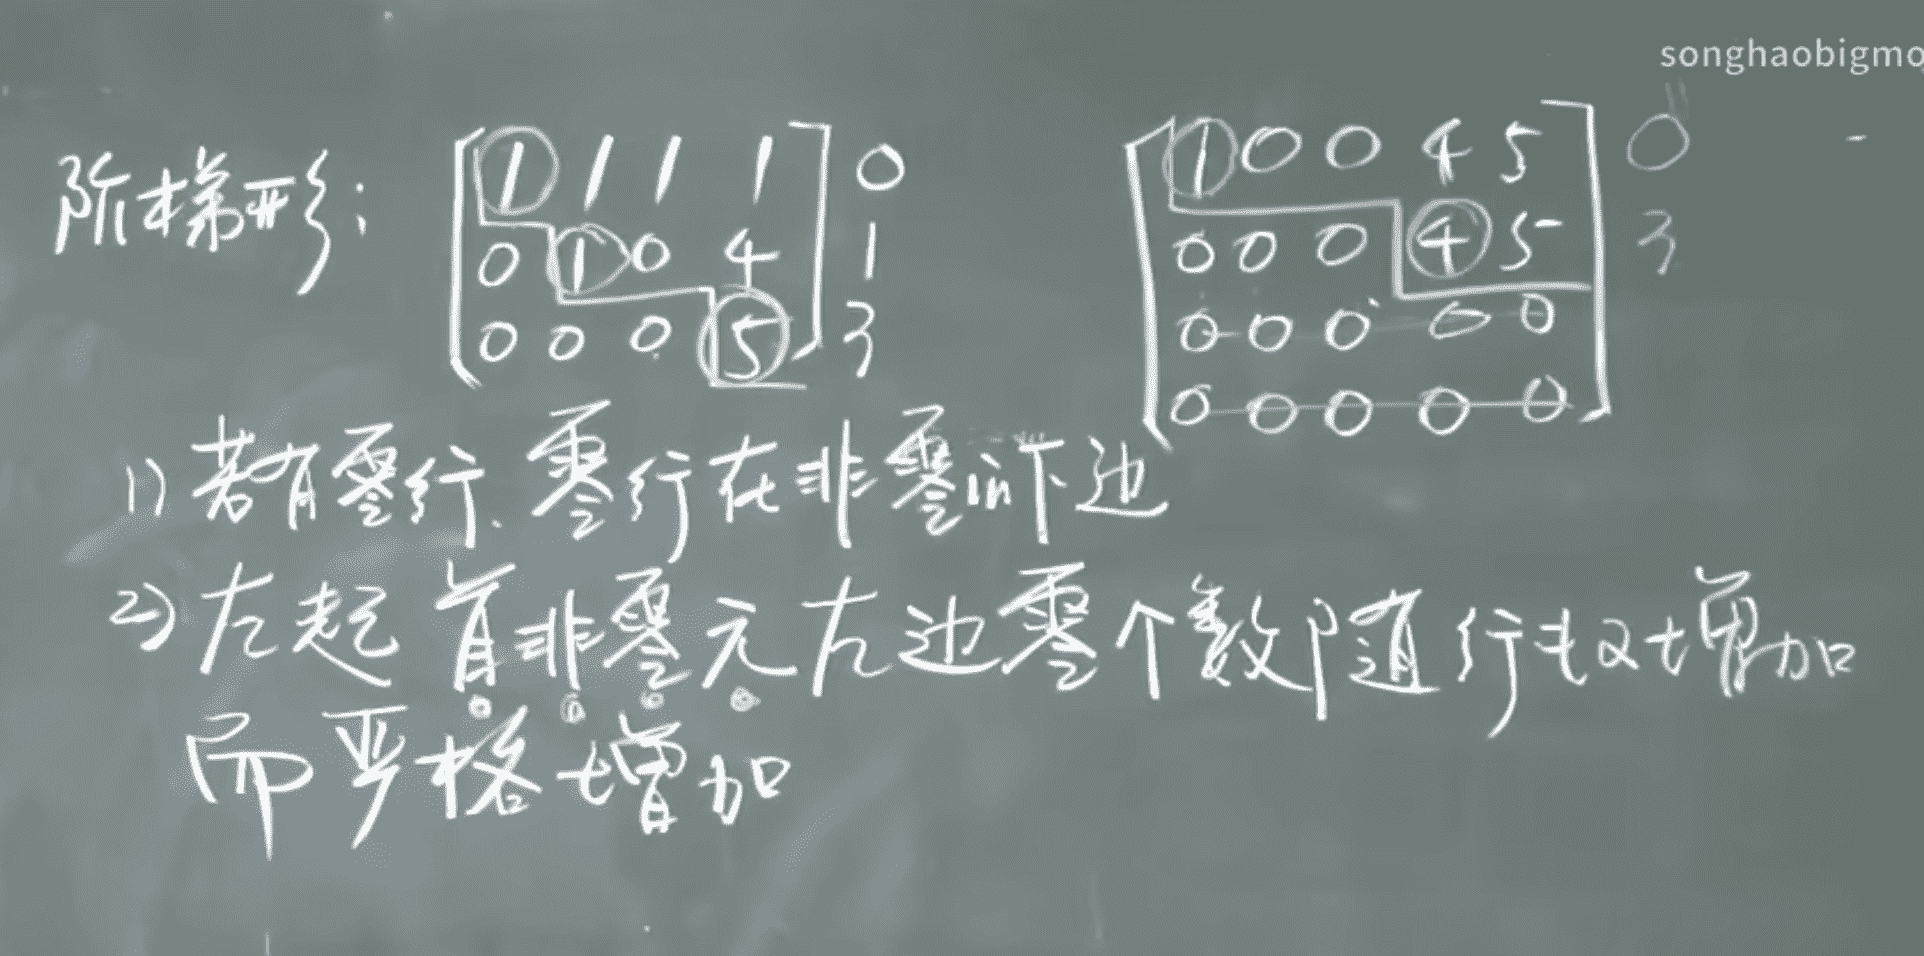 songhaobigmo
阶梯形:
1 1 1 1 0
0 1 0 4 1
0 0 0 5 3
1 0 0 4 5 0
0 0 0 4 5 3
0 0 0 0 0
0 0 0 0 0
1) 若有零行. 零行在非零行下边
2) 左起 首非零元左边零个数随行数增加
而严格增加